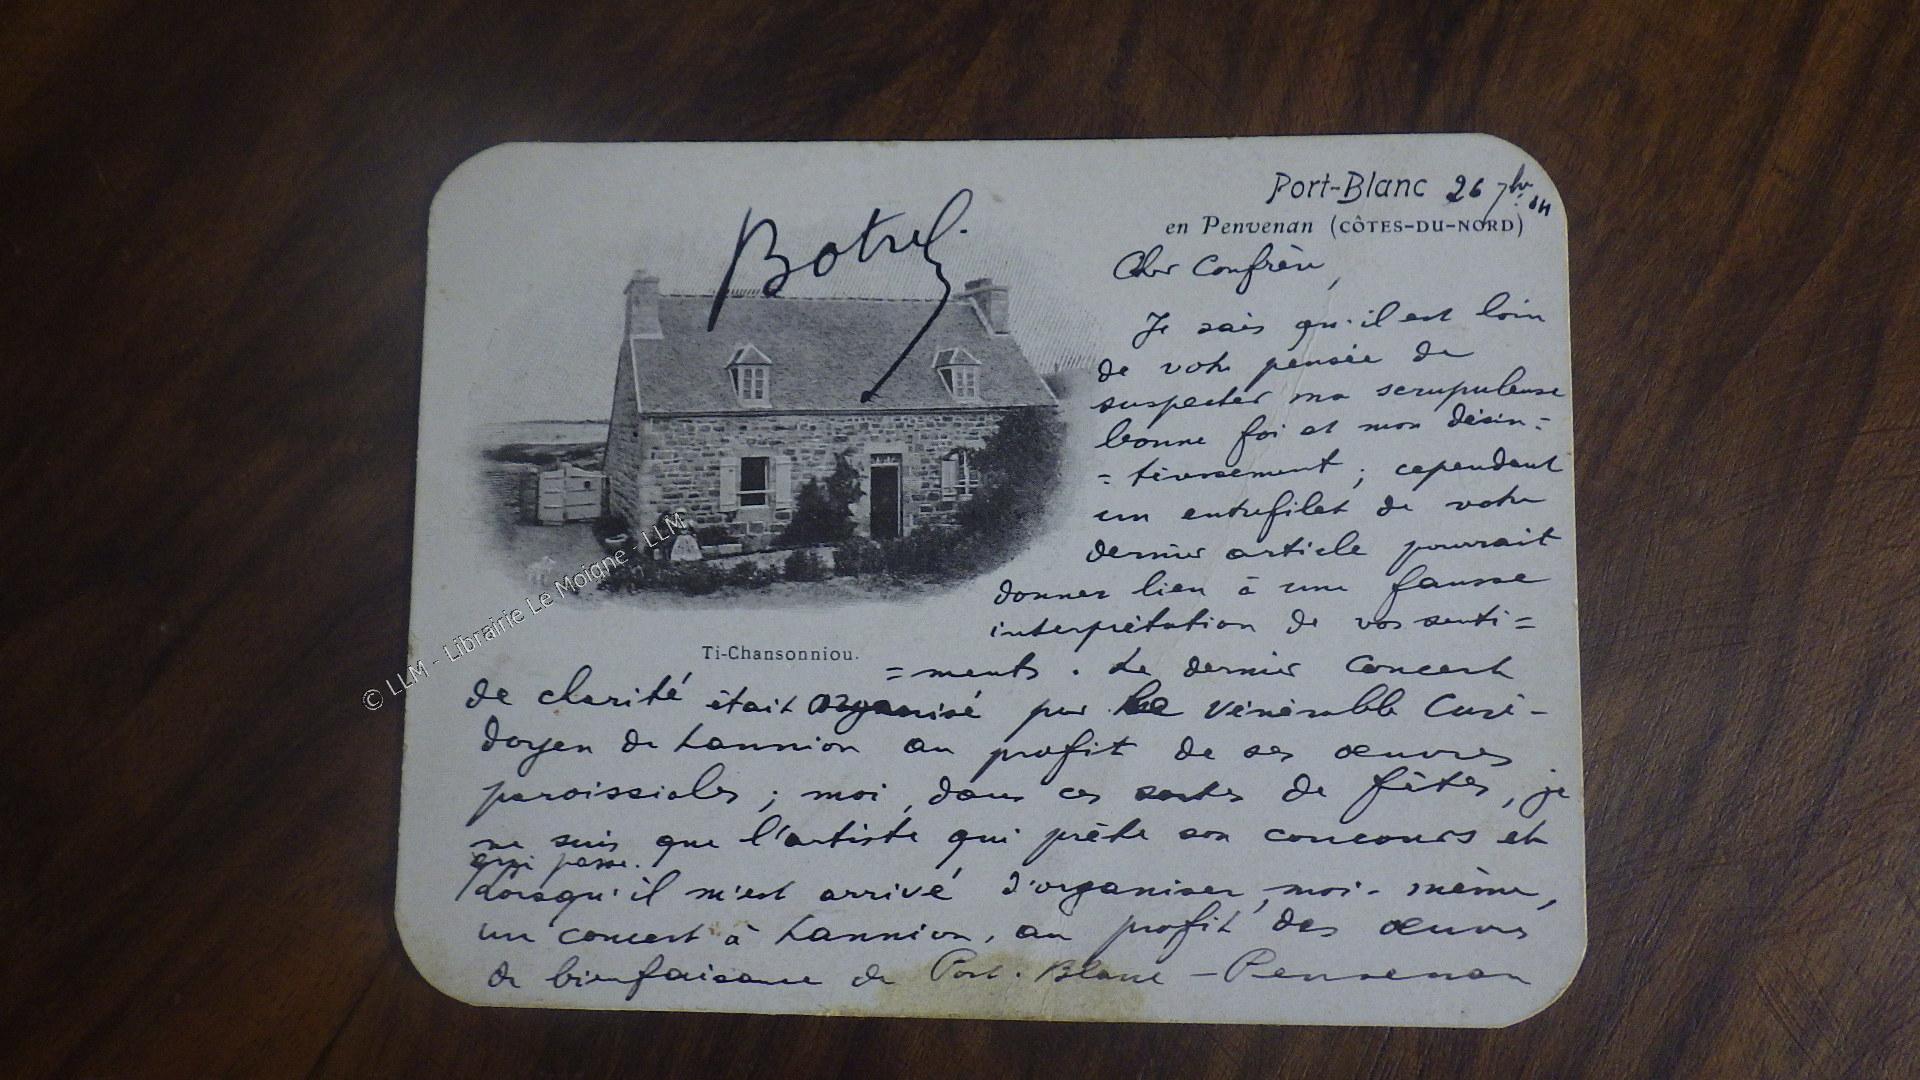 Port-Blanc 26 7bre
en Penvenan (CÔTES-DU-NORD)
Botrel.
Cher Confrère,
Je sais qu'il est loin
de votre pensée de
suspecter ma scrupuleuse
bonne foi et mon désin=
=téressement ; cependant
un entrefilet de votre
dernier article pourrait
donner lieu à une fausse
interprétation de vos senti=
=ments. Le dernier Concert
Ti-Chansonniou.
de charité était organisé par le vénérable Curé-
doyen de Lannion au profit de ses œuvres
paroissiales ; moi, dans ces sortes de fêtes, je
ne suis que l'artiste qui prête son concours et
qui passe.
Lorsqu'il m'est arrivé d'organiser, moi-même,
un concert à Lannion, au profit des œuvres
de bienfaisance de Port-Blanc - Penvenan
© LLM - Librairie Le Moigne - LLM